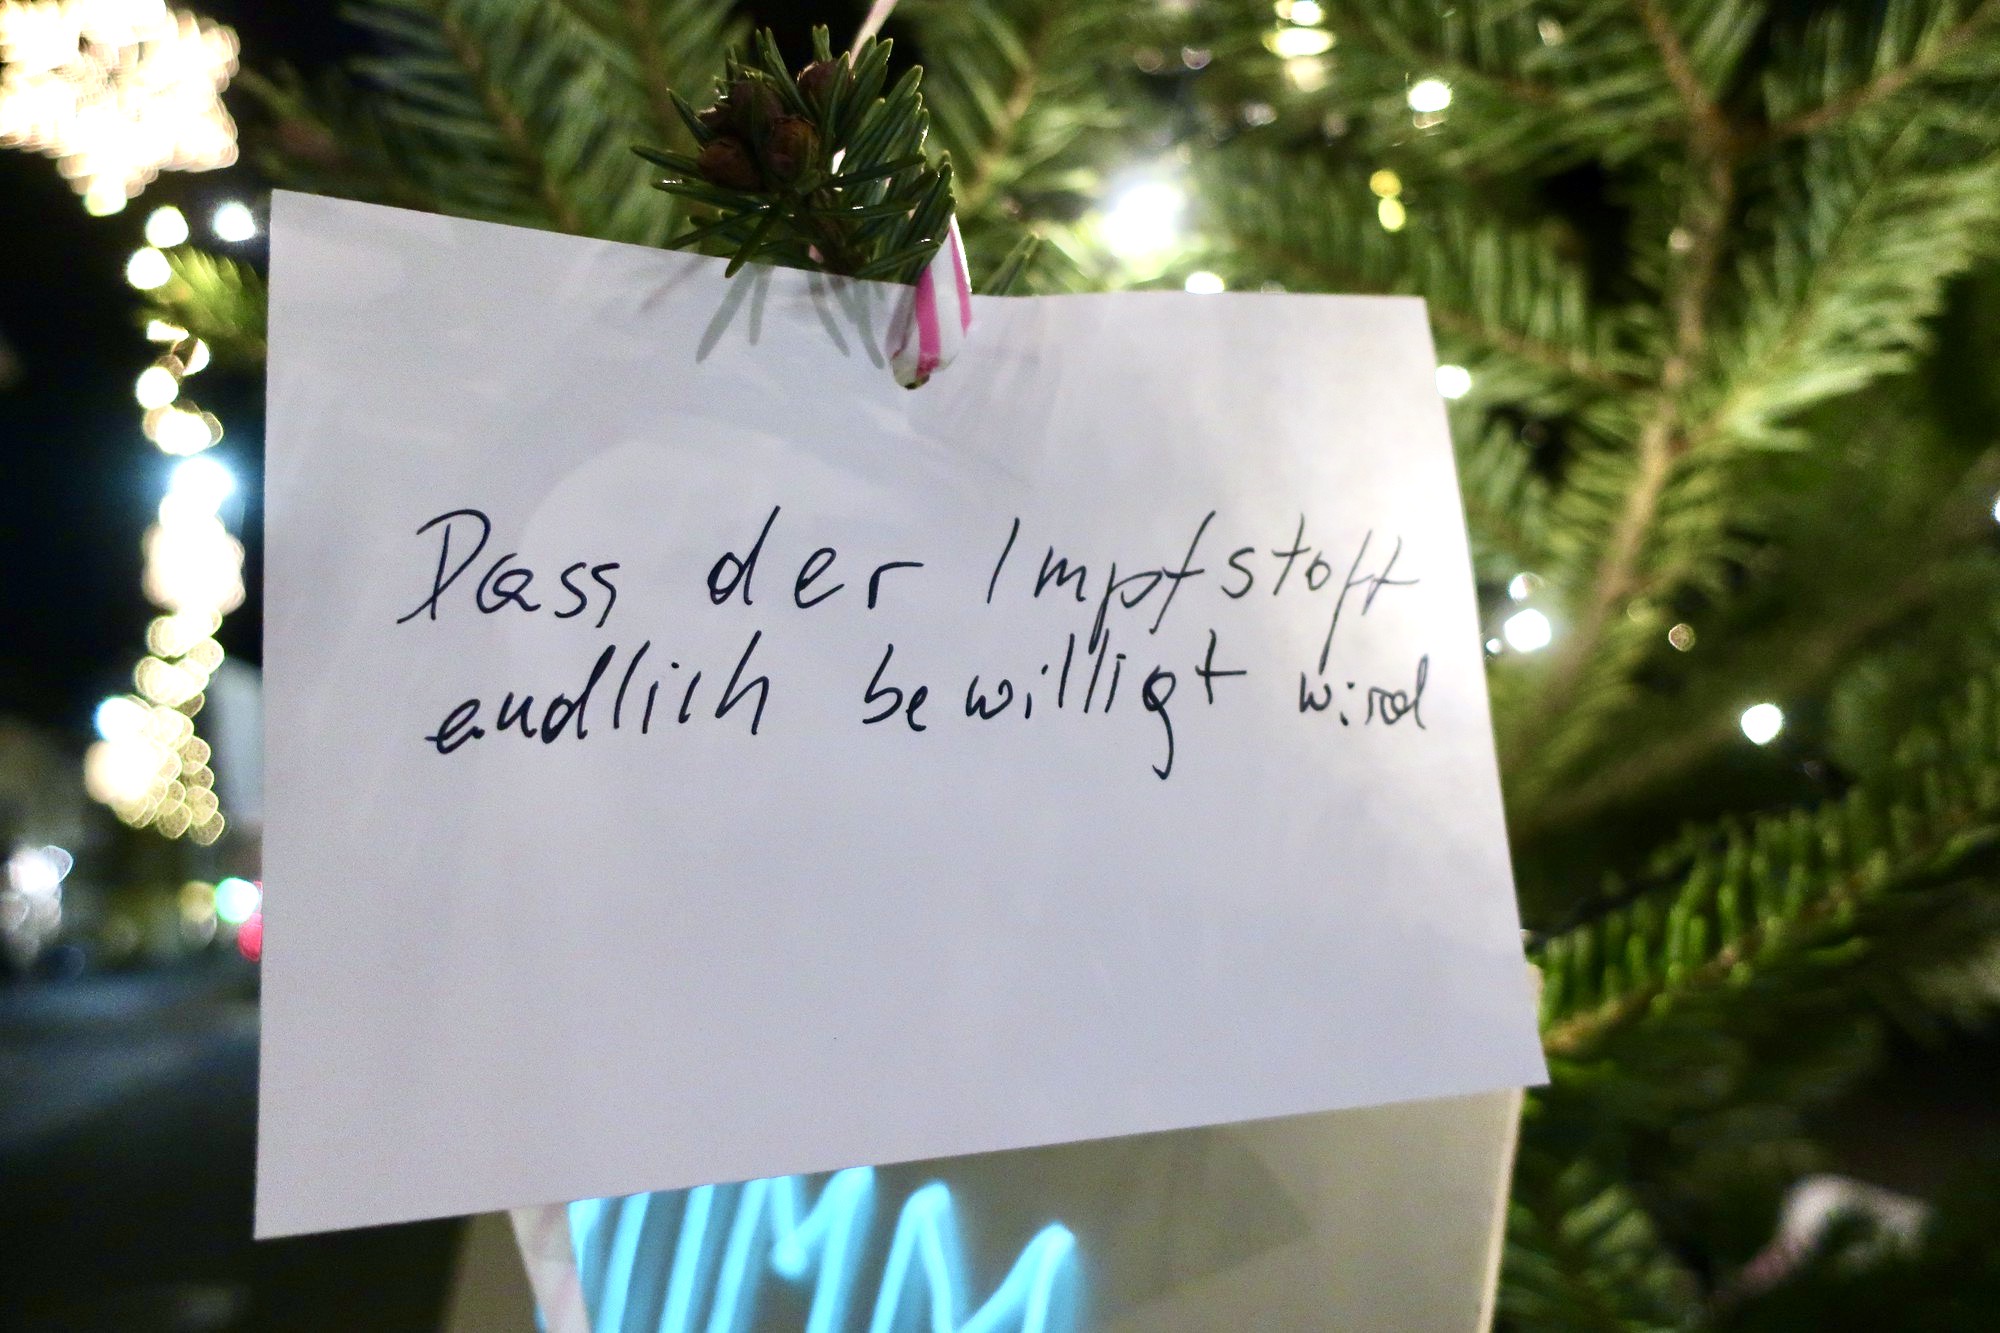 Dass der Impfstoff
endlich bewilligt wird